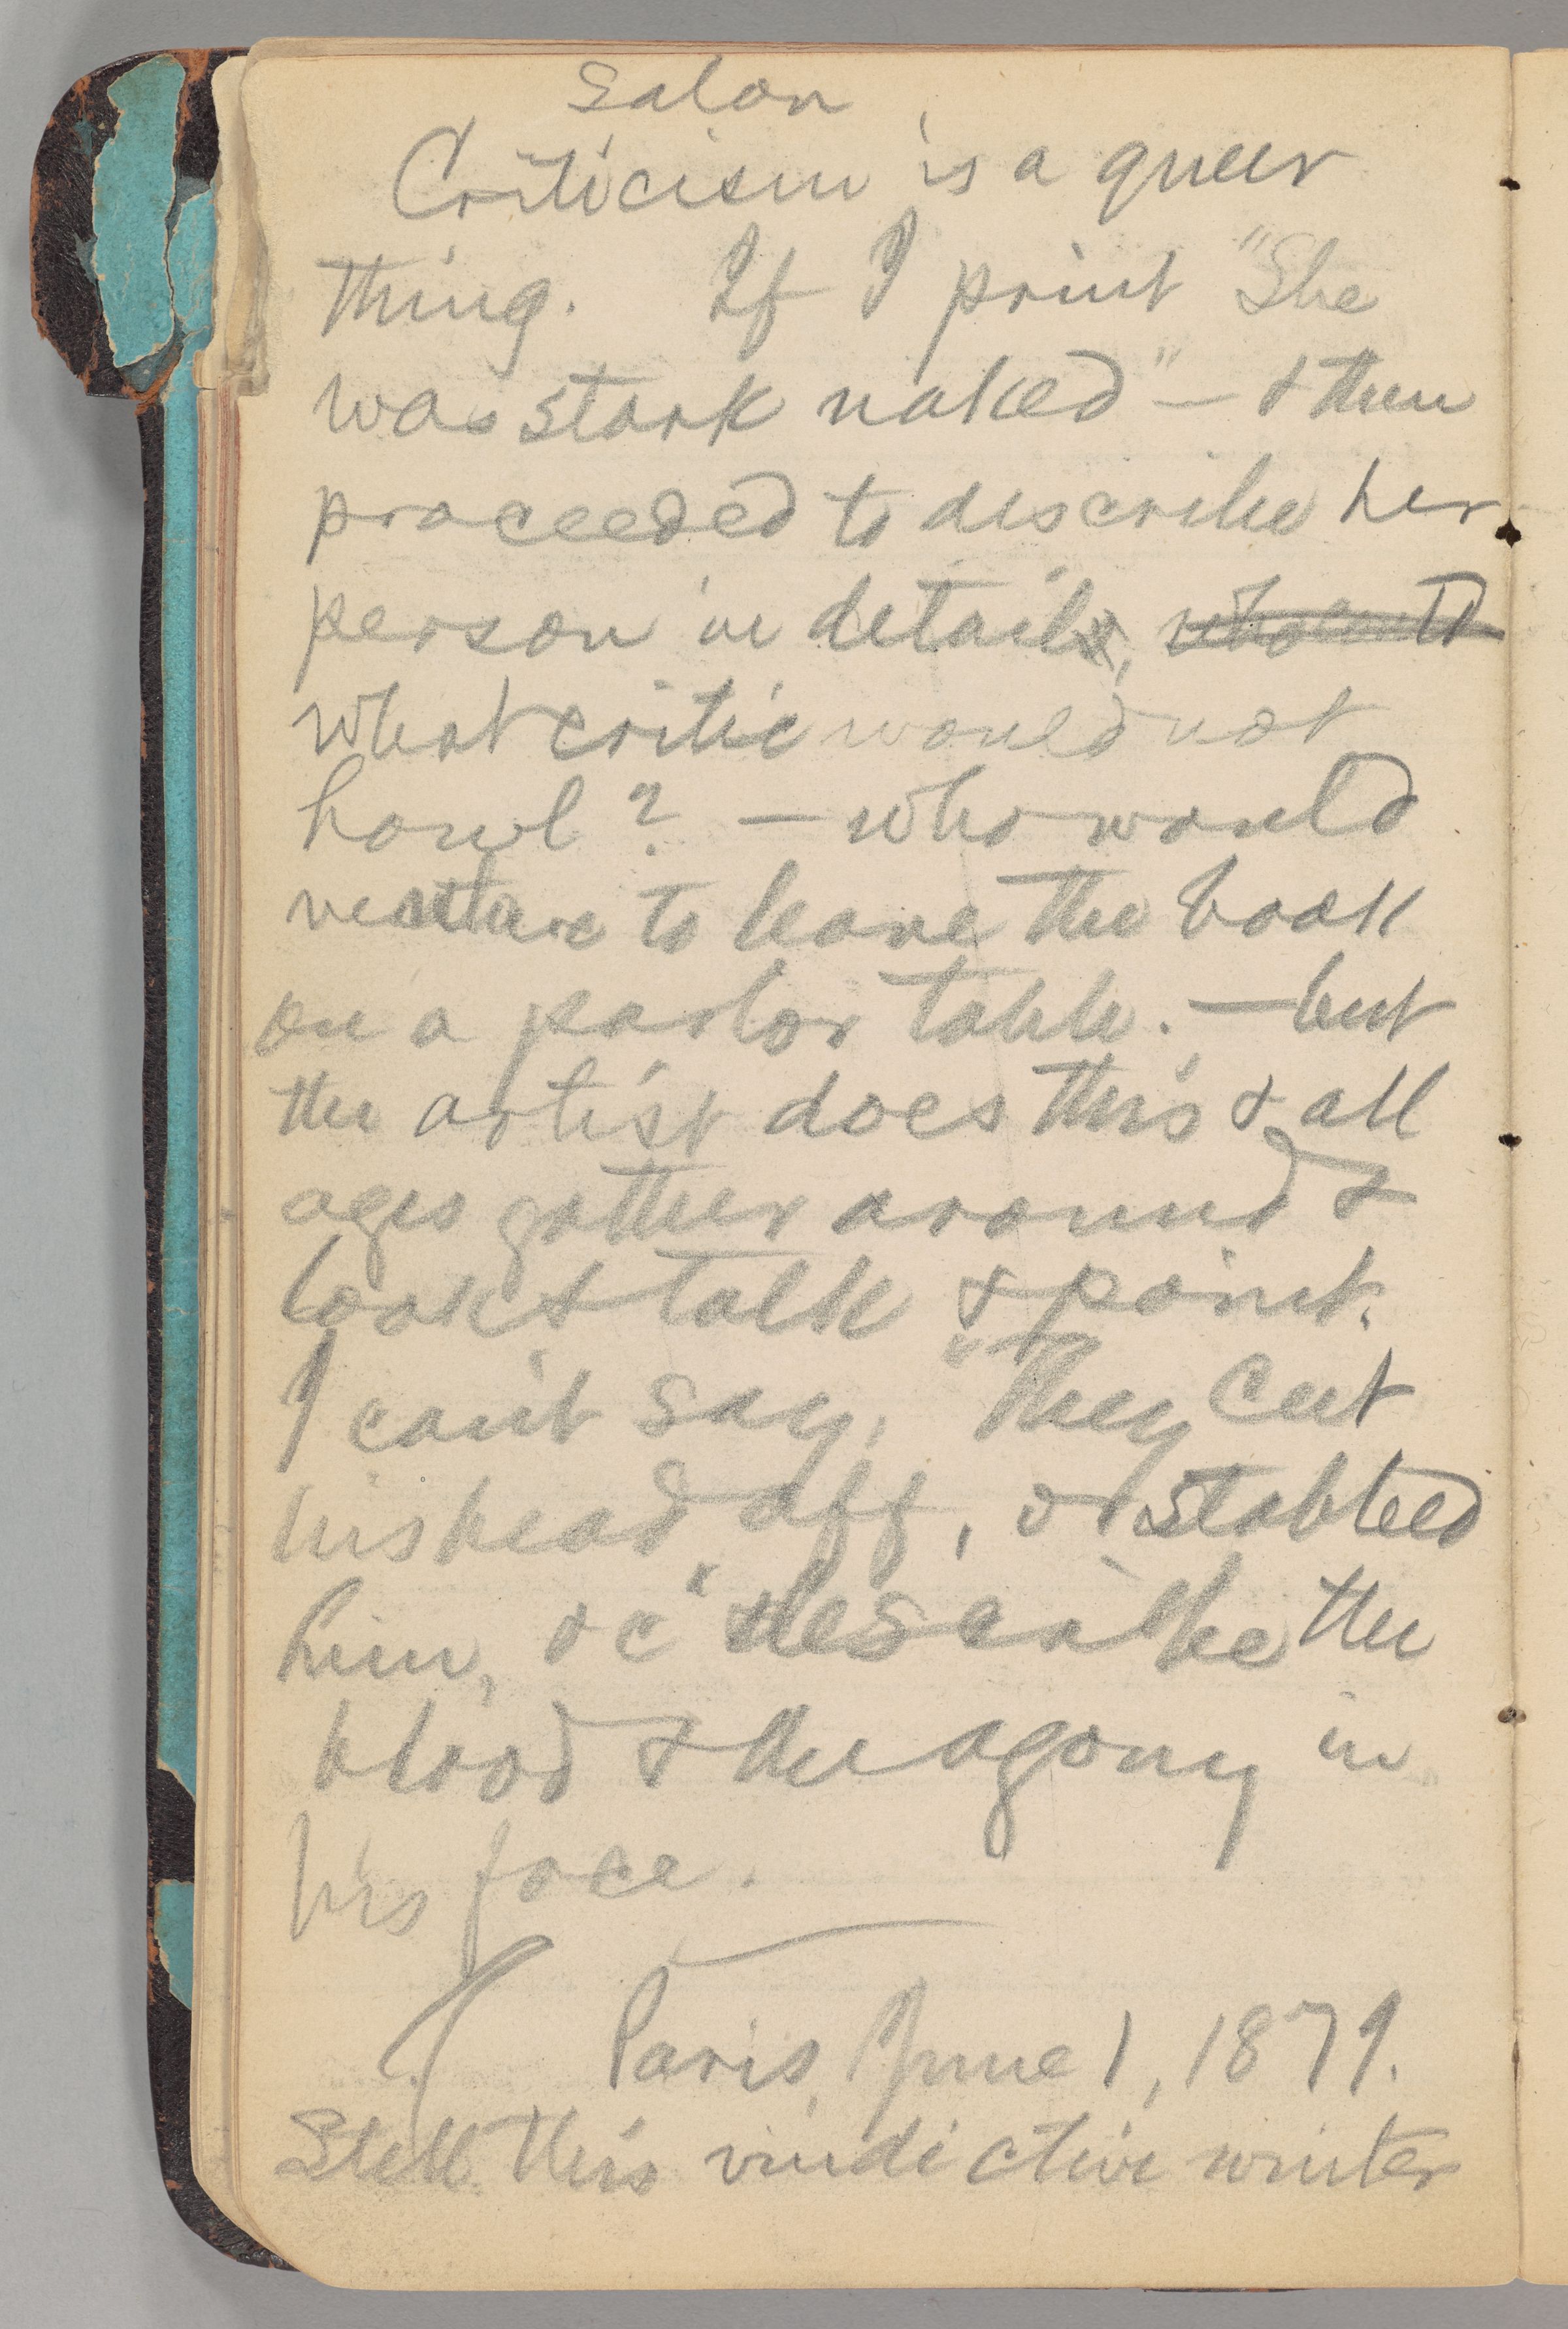 Salon
Criticism is a queer
thing. If I print "She
was stark naked" — & then
proceeded to describe her
person in detail,
what critic would not
howl? — who would
venture to leave the book
on a parlor table. — but
the artist does this & all
ages gather around &
look & talk & point.
I can't say, "They cut
his head off, or stabbed
him, &c" describe the
blood & the agony in
his face.
Paris, June 1, 1879.
Still this vindictive winter